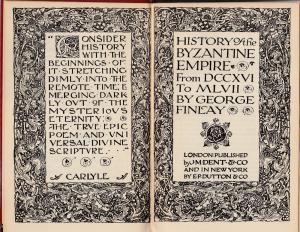 CONSIDER
HISTORY
WITH THE
BEGINNINGS OF
IT STRETCHING
DIMLY INTO THE
REMOTE TIME; &
MERGING DARK
LY OVT OF THE
MYSTERIOVS
ETERNITY:
THE TRVE EPIC
POEM AND VNI
VERSAL DIVINE
SCRIPTVRE...
CARLYLE
HISTORY Of the
BYZANTINE
EMPIRE
From DCCXVI
To MLVII
BY GEORGE
FINLAY
LONDON PUBLISHED
by J.M. DENT & CO
AND IN NEW YORK
BY E.P. DUTTON & CO